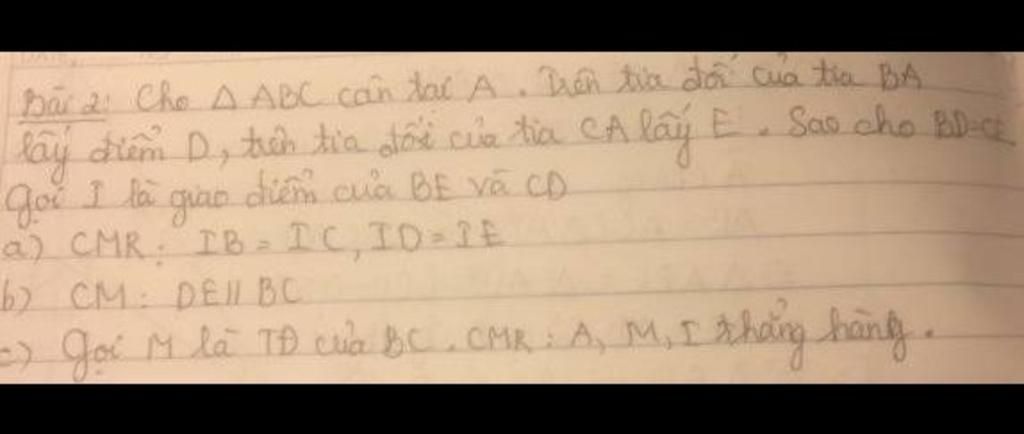 Bài 2: Cho △ ABC cân tại A. Trên tia đối của tia BA
lấy điểm D, trên tia đối của tia CA lấy E. Sao cho BD=CE.
Gọi I là giao điểm của BE và CD
a) CMR: IB = IC, ID = IE
b) CM: DE // BC
c) Gọi M là TĐ của BC. CMR: A, M, I thẳng hàng.